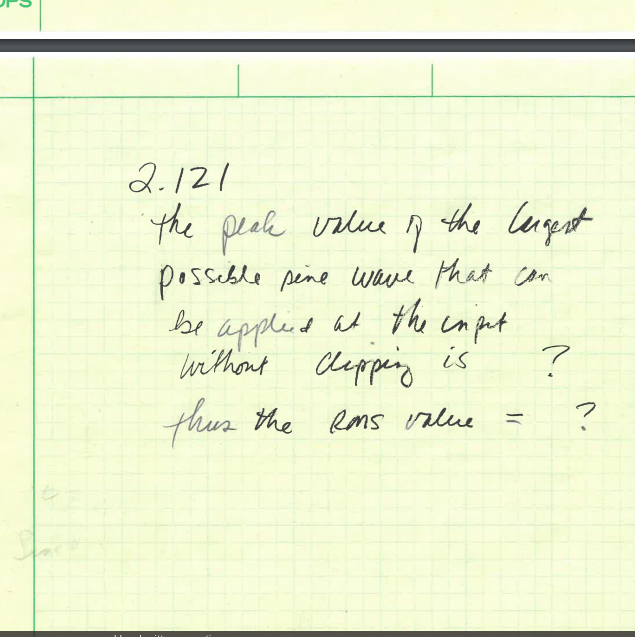 OPS
2.121
the peak value of the largest
possible sine wave that can
be applied at the input
without clipping is ?
thus the RMS value = ?